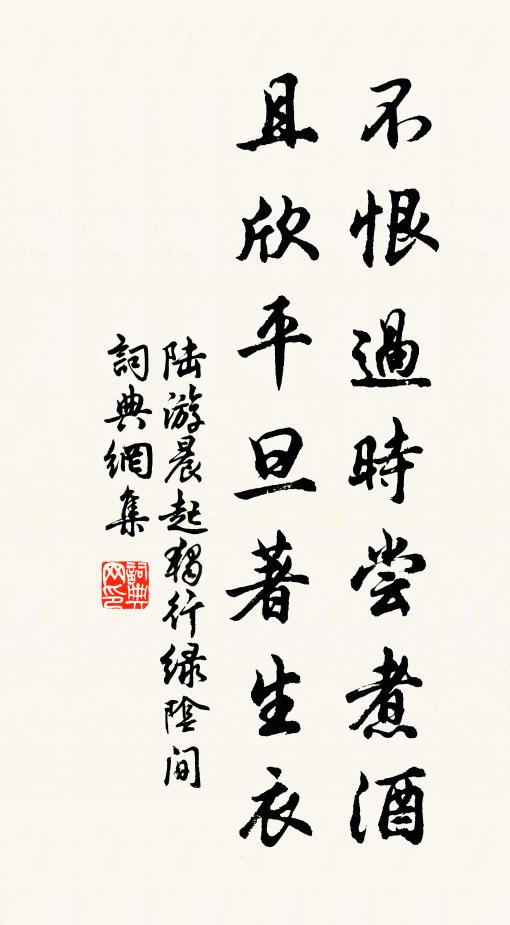 不恨過時尝煮酒
且欣平旦著生衣
陆游晨起獨行绿陰间
詞典網集
詞典网印